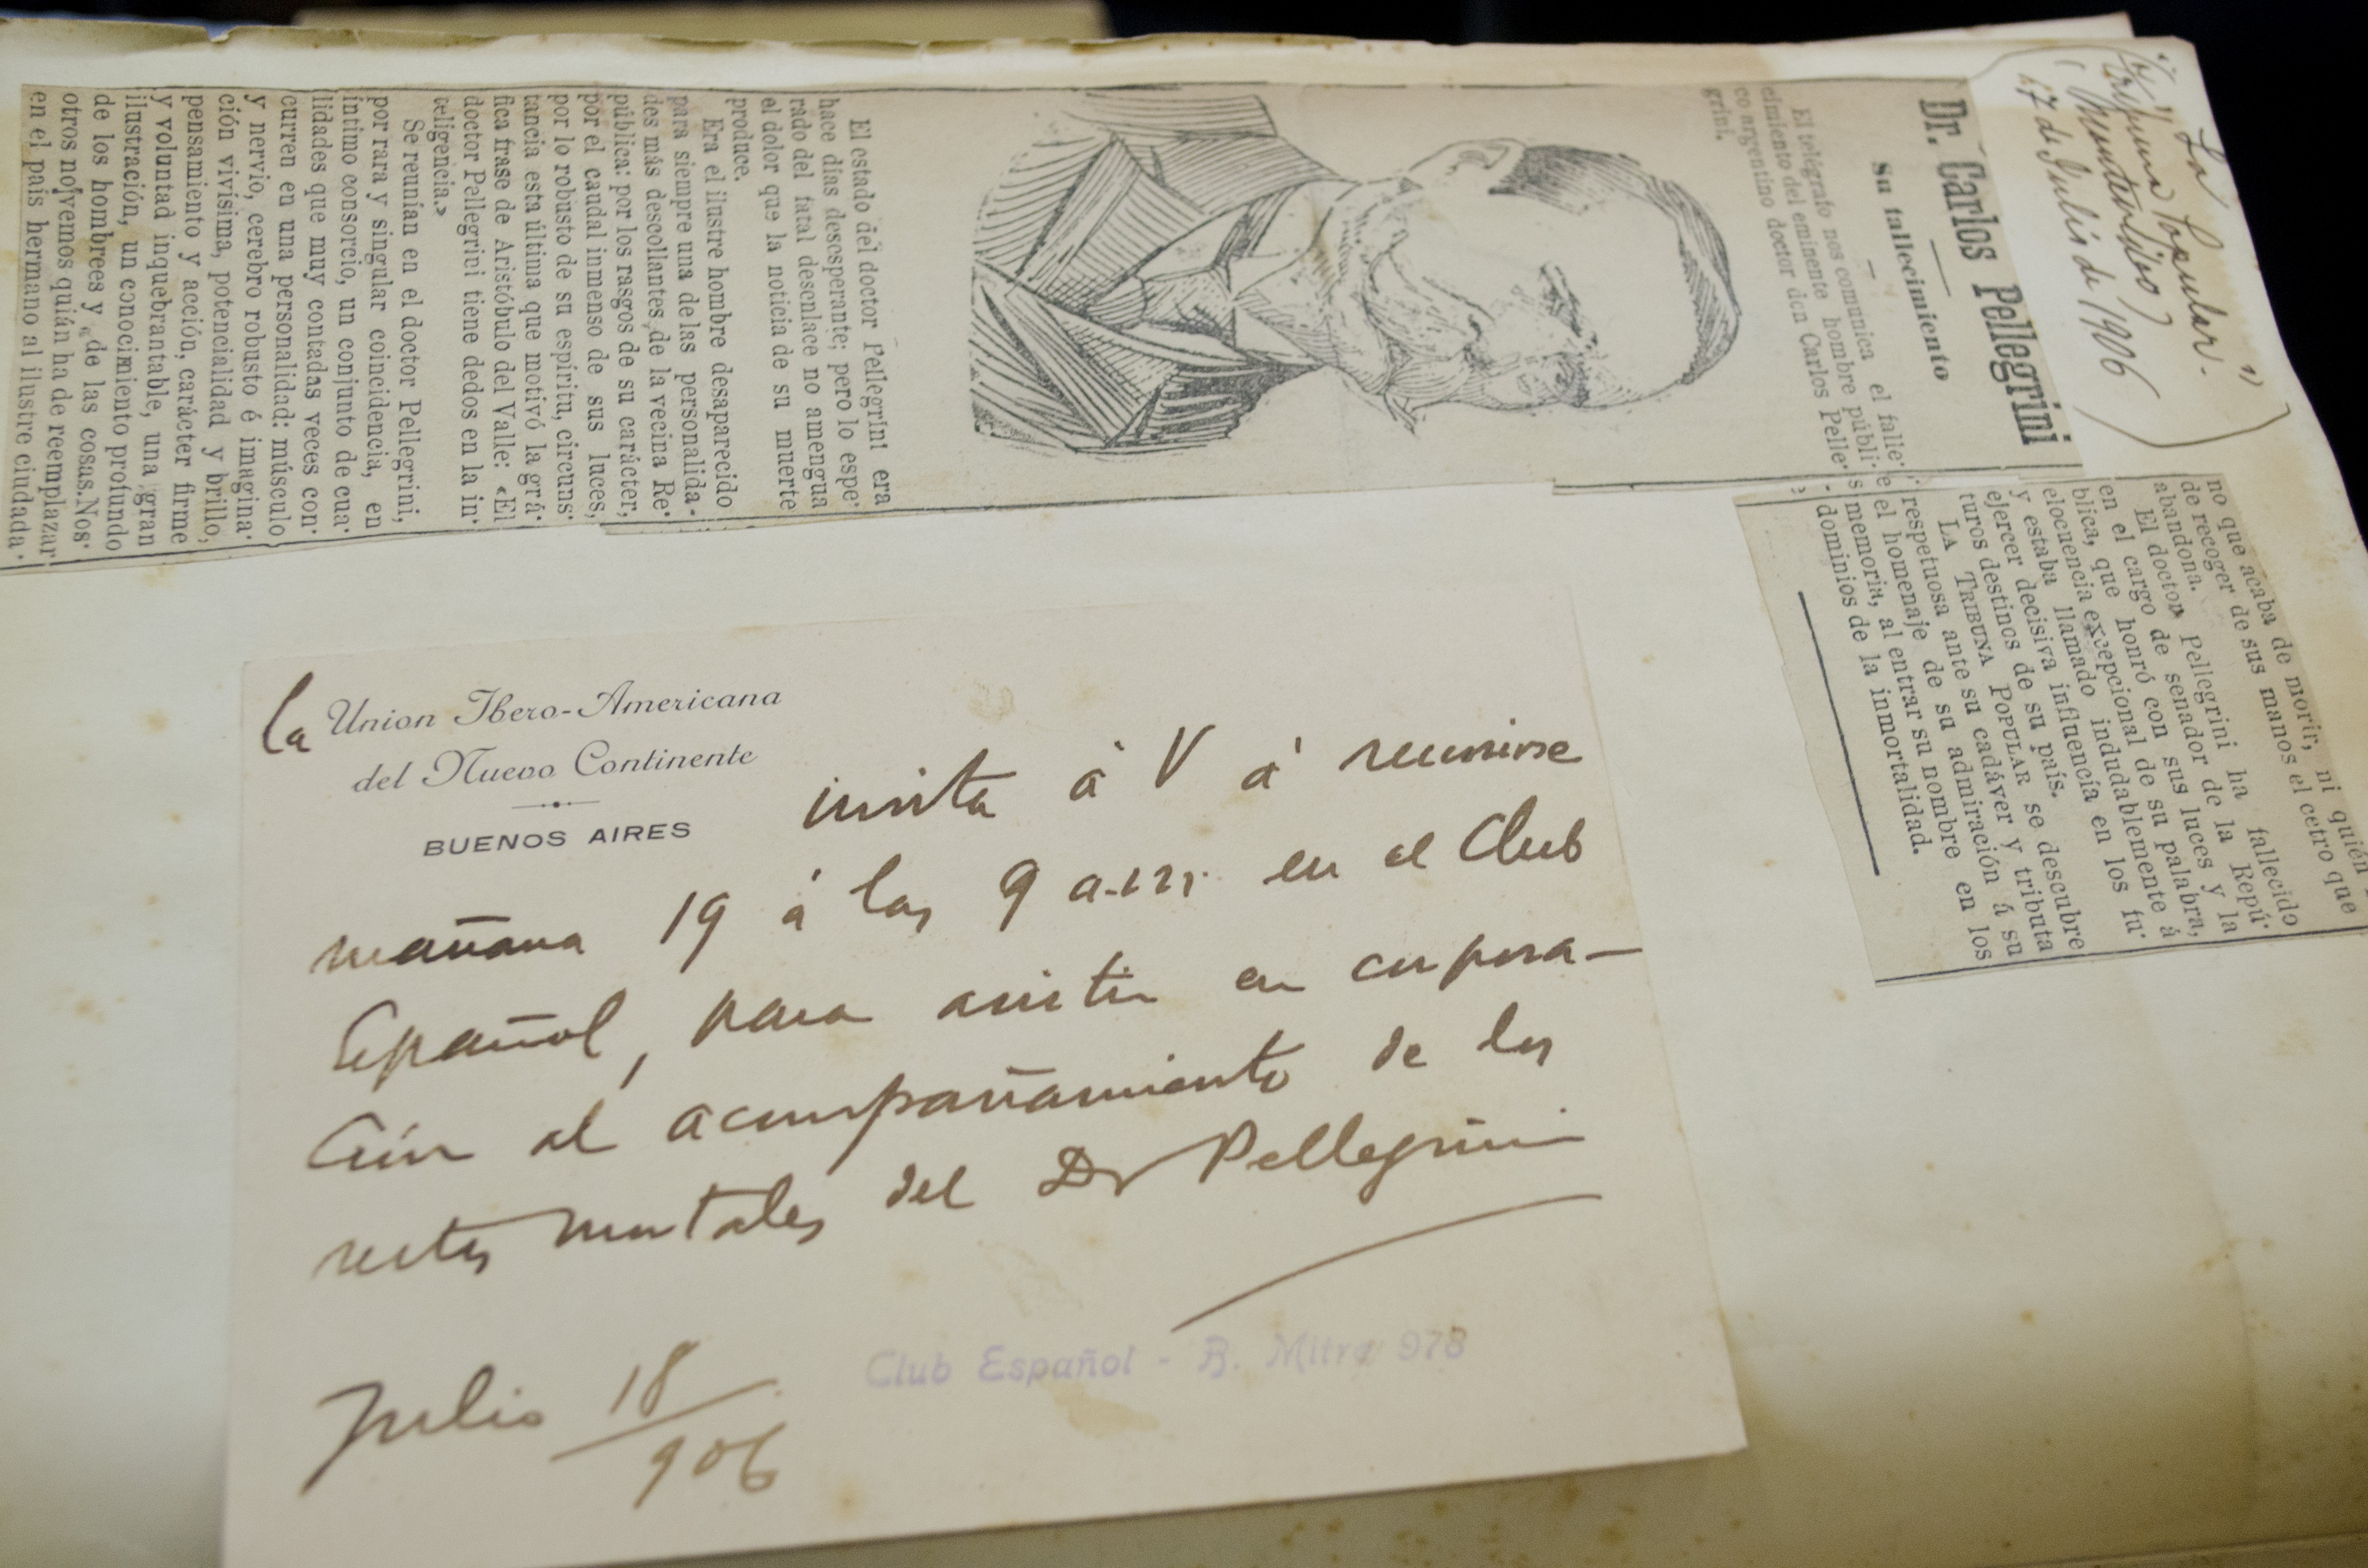 "La
Tribuna Popular"
(Montevideo)
17 de Julio de 1906
Dr. Carlos Pellegrini
Su fallecimiento
El telégrafo nos comunica el falle-
cimiento del eminente hombre públi-
co argentino doctor don Carlos Pelle-
grini.
El estado del doctor Pellegrini era
hace días desesperante; pero lo espe-
rado del fatal desenlace no amengua
el dolor que la noticia de su muerte
produce.
Era el ilustre hombre desaparecido
para siempre una de las personalida-
des más descollantes de la vecina Re-
pública: por los rasgos de su carácter,
por el caudal inmenso de sus luces,
por lo robusto de su espíritu, circuns-
tancia esta última que motivó la grá-
fica frase de Aristóbulo del Valle: «El
doctor Pellegrini tiene dedos en la in-
teligencia.»
Se reunían en el doctor Pellegrini,
por rara y singular coincidencia, en
íntimo consorcio, un conjunto de cua-
lidades que muy contadas veces con-
curren en una personalidad: músculo
y nervio, cerebro robusto é imagina-
ción vivísima, potencialidad y brillo,
pensamiento y acción, carácter firme
y voluntad inquebrantable, una gran
ilustración, un conocimiento profundo
de los hombrees y de las cosas. Nos-
otros no vemos quién ha de reemplazar
en el país hermano al ilustre ciudada-
no que acaba de morir, ni quién
de recoger de sus manos el cetro que
abandona.
El doctor Pellegrini ha fallecido
en el cargo de senador de la Repú-
blica, que honró con sus luces y la
elocuencia excepcional de su palabra,
y estaba llamado indudablemente á
ejercer decisiva influencia en los fu-
turos destinos de su país.
LA TRIBUNA POPULAR se descubre
respetuosa ante su cadáver y tributa
el homenaje de su admiración á su
memoria, al entrar su nombre en los
dominios de la inmortalidad.
la Union Ibero-Americana
del Nuevo Continente
BUENOS AIRES
invita á V á reunirse
mañana 19 á las 9 a.m. en el Club
Español, para asistir en corpora-
ción al acompañamiento de los
restos mortales del Dr Pellegrini
Club Español - B. Mitre 978
Julio 18/906